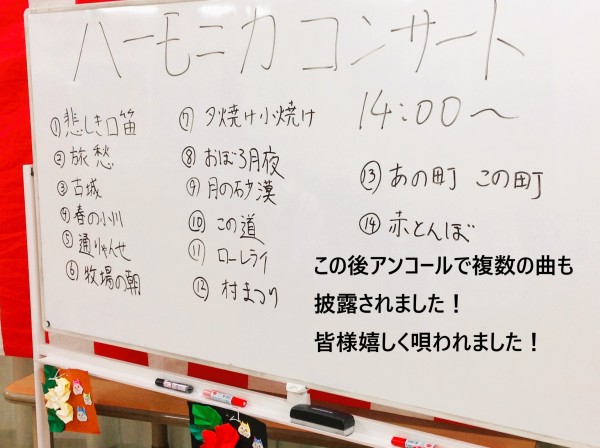 ハーモニカ コンサート
14:00〜
①悲しき口笛
②旅愁
③古城
④春の小川
⑤通りゃんせ
⑥牧場の朝
⑦夕焼け小焼け
⑧おぼろ月夜
⑨月の砂漠
⑩この道
⑪ローレライ
⑫村まつり
⑬あの町 この町
⑭赤とんぼ
この後アンコールで複数の曲も
披露されました！
皆様嬉しく唄われました！